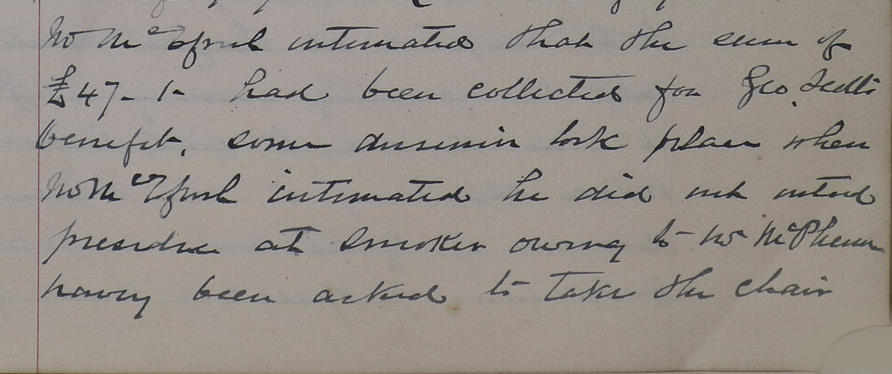 Mr McEfrish intimated that the sum of
£47-1- had been collected for Geo.
benefit, some discussion took place when
Mr McEfrish intimated he did not intend
presiding at smoker owing to Mr McPherson
having been asked to take the chair